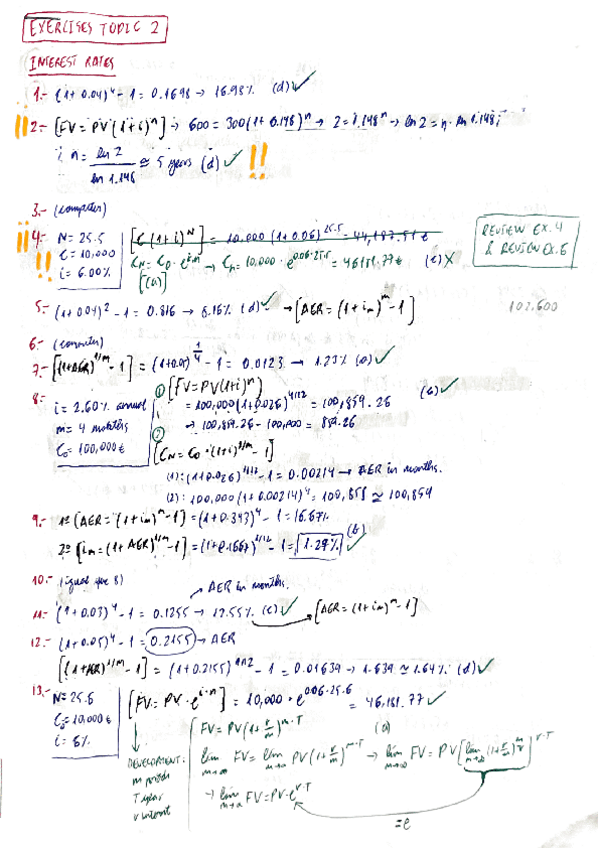 EXERCISES TOPIC 2
INTEREST RATES
1.- (1+0.04)⁴ - 1 = 0.1698 → 16.98% (d) ✓
!! 2.- [FV = PV(1+i)ⁿ] → 600 = 300(1+0.148)ⁿ → 2 = 1.148ⁿ → ln 2 = n · ln 1.148;
; n = ln 2 / ln 1.148 ≅ 5 years (d) ✓ !!
3.- (computer)
!! 4.- N = 25.5
!! C = 10,000
i = 6.00%
[C(1+i)ᴺ] = 10.000(1+0.06)²⁵·⁵ =
Cₙ = C₀ · e^(i·n) → Cₙ = 10,000 · e^(0.06·25.5) = 46181.77€ (c) X
[(a)]
REVIEW EX.4
& REVIEW EX.6
5.- (1+0.04)² - 1 = 0.816 → 8.16% (d) ✓ → [AER = (1+iₘ)ᵐ - 1]
102,600
6.- (computer)
7.- [(1+AER)^(1/m) - 1] = (1+0.05)^(1/4) - 1 = 0.0123 → 1.23% (a) ✓
8.- i = 2.60% annual
m = 4 months
C₀ = 100,000€
① [FV = PV(1+i)ⁿ]
= 100,000(1+0.026)^(4/12) = 100,859.26 (b) ✓
→ 100,859.26 - 100,000 = 859.26
② [Cₙ = C₀ · (1+i)^(1/m) - 1]
(1): (1+0.026)^(1/12) - 1 = 0.00214 → AER in months.
(2): 100,000(1+0.00214)⁴ = 100,858 ≅ 100,859
9.- 1º [AER = (1+iₘ)ᵐ - 1] = (1+0.393)⁴ - 1 = 16.67%
2º [iₘ = (1+AER)^(1/m) - 1] = (1+0.1667)^(1/12) - 1 = 1.29% (b) ✓
10.- (igual que 8)
→ AER in months.
11.- (1+0.03)⁴ - 1 = 0.1255 → 12.55% (c) ✓ [AER = (1+iₘ)ⁿ - 1]
12.- (1+0.05)⁴ - 1 = 0.2155 → AER
[(1+AER)^(1/m) - 1] = (1+0.2155)^(1/12) - 1 = 0.01639 → 1.639 ≅ 1.64% (d) ✓
13.- N = 25.6
C₀ = 10,000€
i = 6%
[FV = PV · e^(i·n)] = 10,000 · e^(0.06·25.6) = 46,181.77 ✓
(a)
DEVELOPMENT:
m
T year
r interest
FV = PV(1+r/m)^(m·T)
lim m→∞ FV = lim m→∞ PV(1+r/m)^(m·T) → lim m→∞ FV = PV[lim m→∞ (1+r/m)^(m/r)]^(r·T)
→ lim m→∞ FV = PV·e^(r·T)
= e